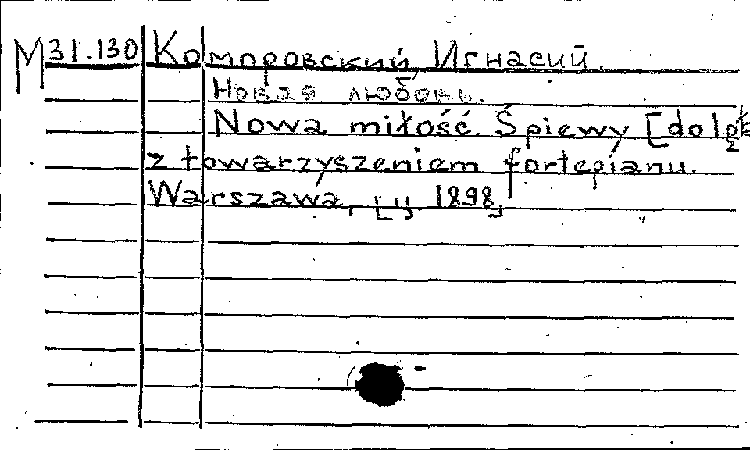 М 31.130 Коморовский, Игнасий.
Новая любовь.
Nowa miłość. Śpiewy [
z towarzyszeniem fortepianu.
Warszawa, 1898